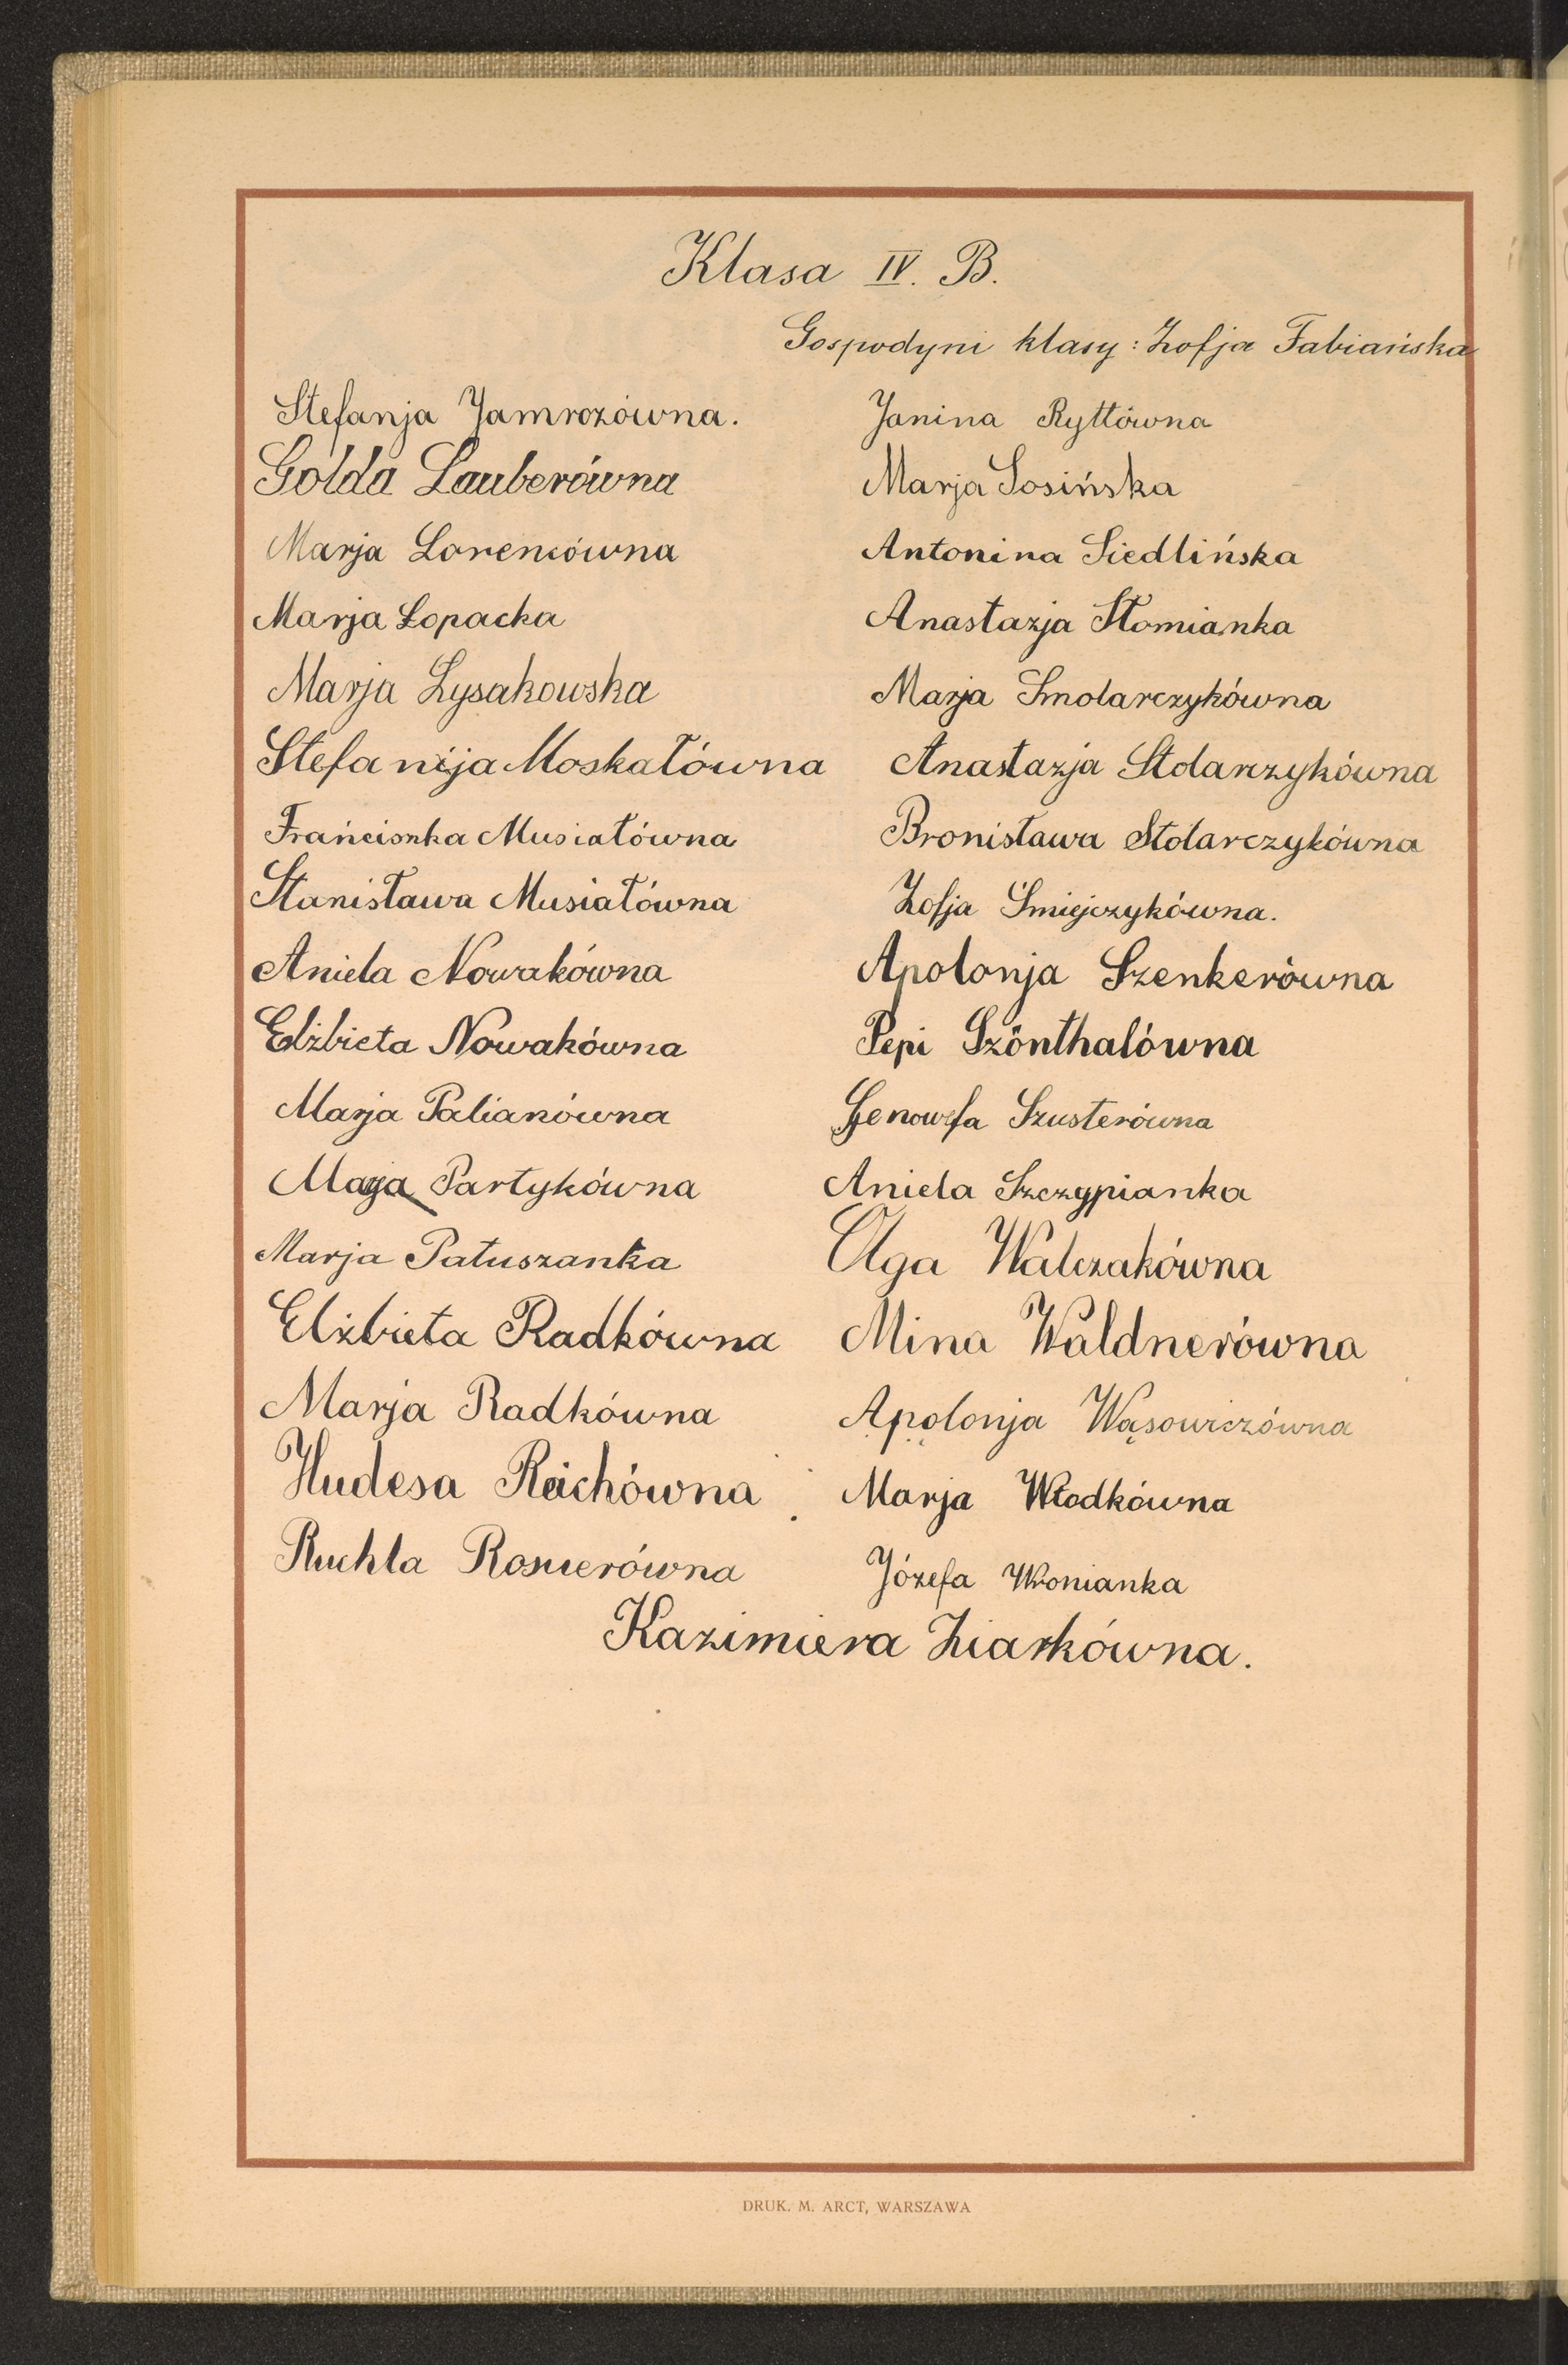 Klasa IV. B.
Gospodyni klasy: Zofja Fabiańska
Stefanja Jamrozówna.
Golda Lauberówna
Marja Lorencówna
Marja Łopacka
Marja Łysakowska
Stefanija Moskałówna
Franciszka Musiałówna
Stanisława Musiałówna
Aniela Nowakówna
Elżbieta Nowakówna
Marja Palianówna
Marja Partykówna
Marja Patuszanka
Elżbieta Radkówna
Marja Radkówna
Hudesa Reichówna
Ruchla Rosnerówna
Janina Ryttówna
Marja Sosińska
Antonina Siedlińska
Anastazja Słomianka
Marja Smolarczykówna
Anastazja Stolarczykówna
Bronisława Stolarczykówna
Zofja Śmiejczykówna.
Apolonja Szenkerówna
Pepi Szönthalówna
Genowefa Szusterówna
Aniela Szczypianka
Olga Walczakówna
Mina Waldnerówna
Apolonja Wąsowiczówna
Marja Włodkówna
Józefa Wronianka
Kazimiera Ziarkówna.
DRUK. M. ARCT, WARSZAWA